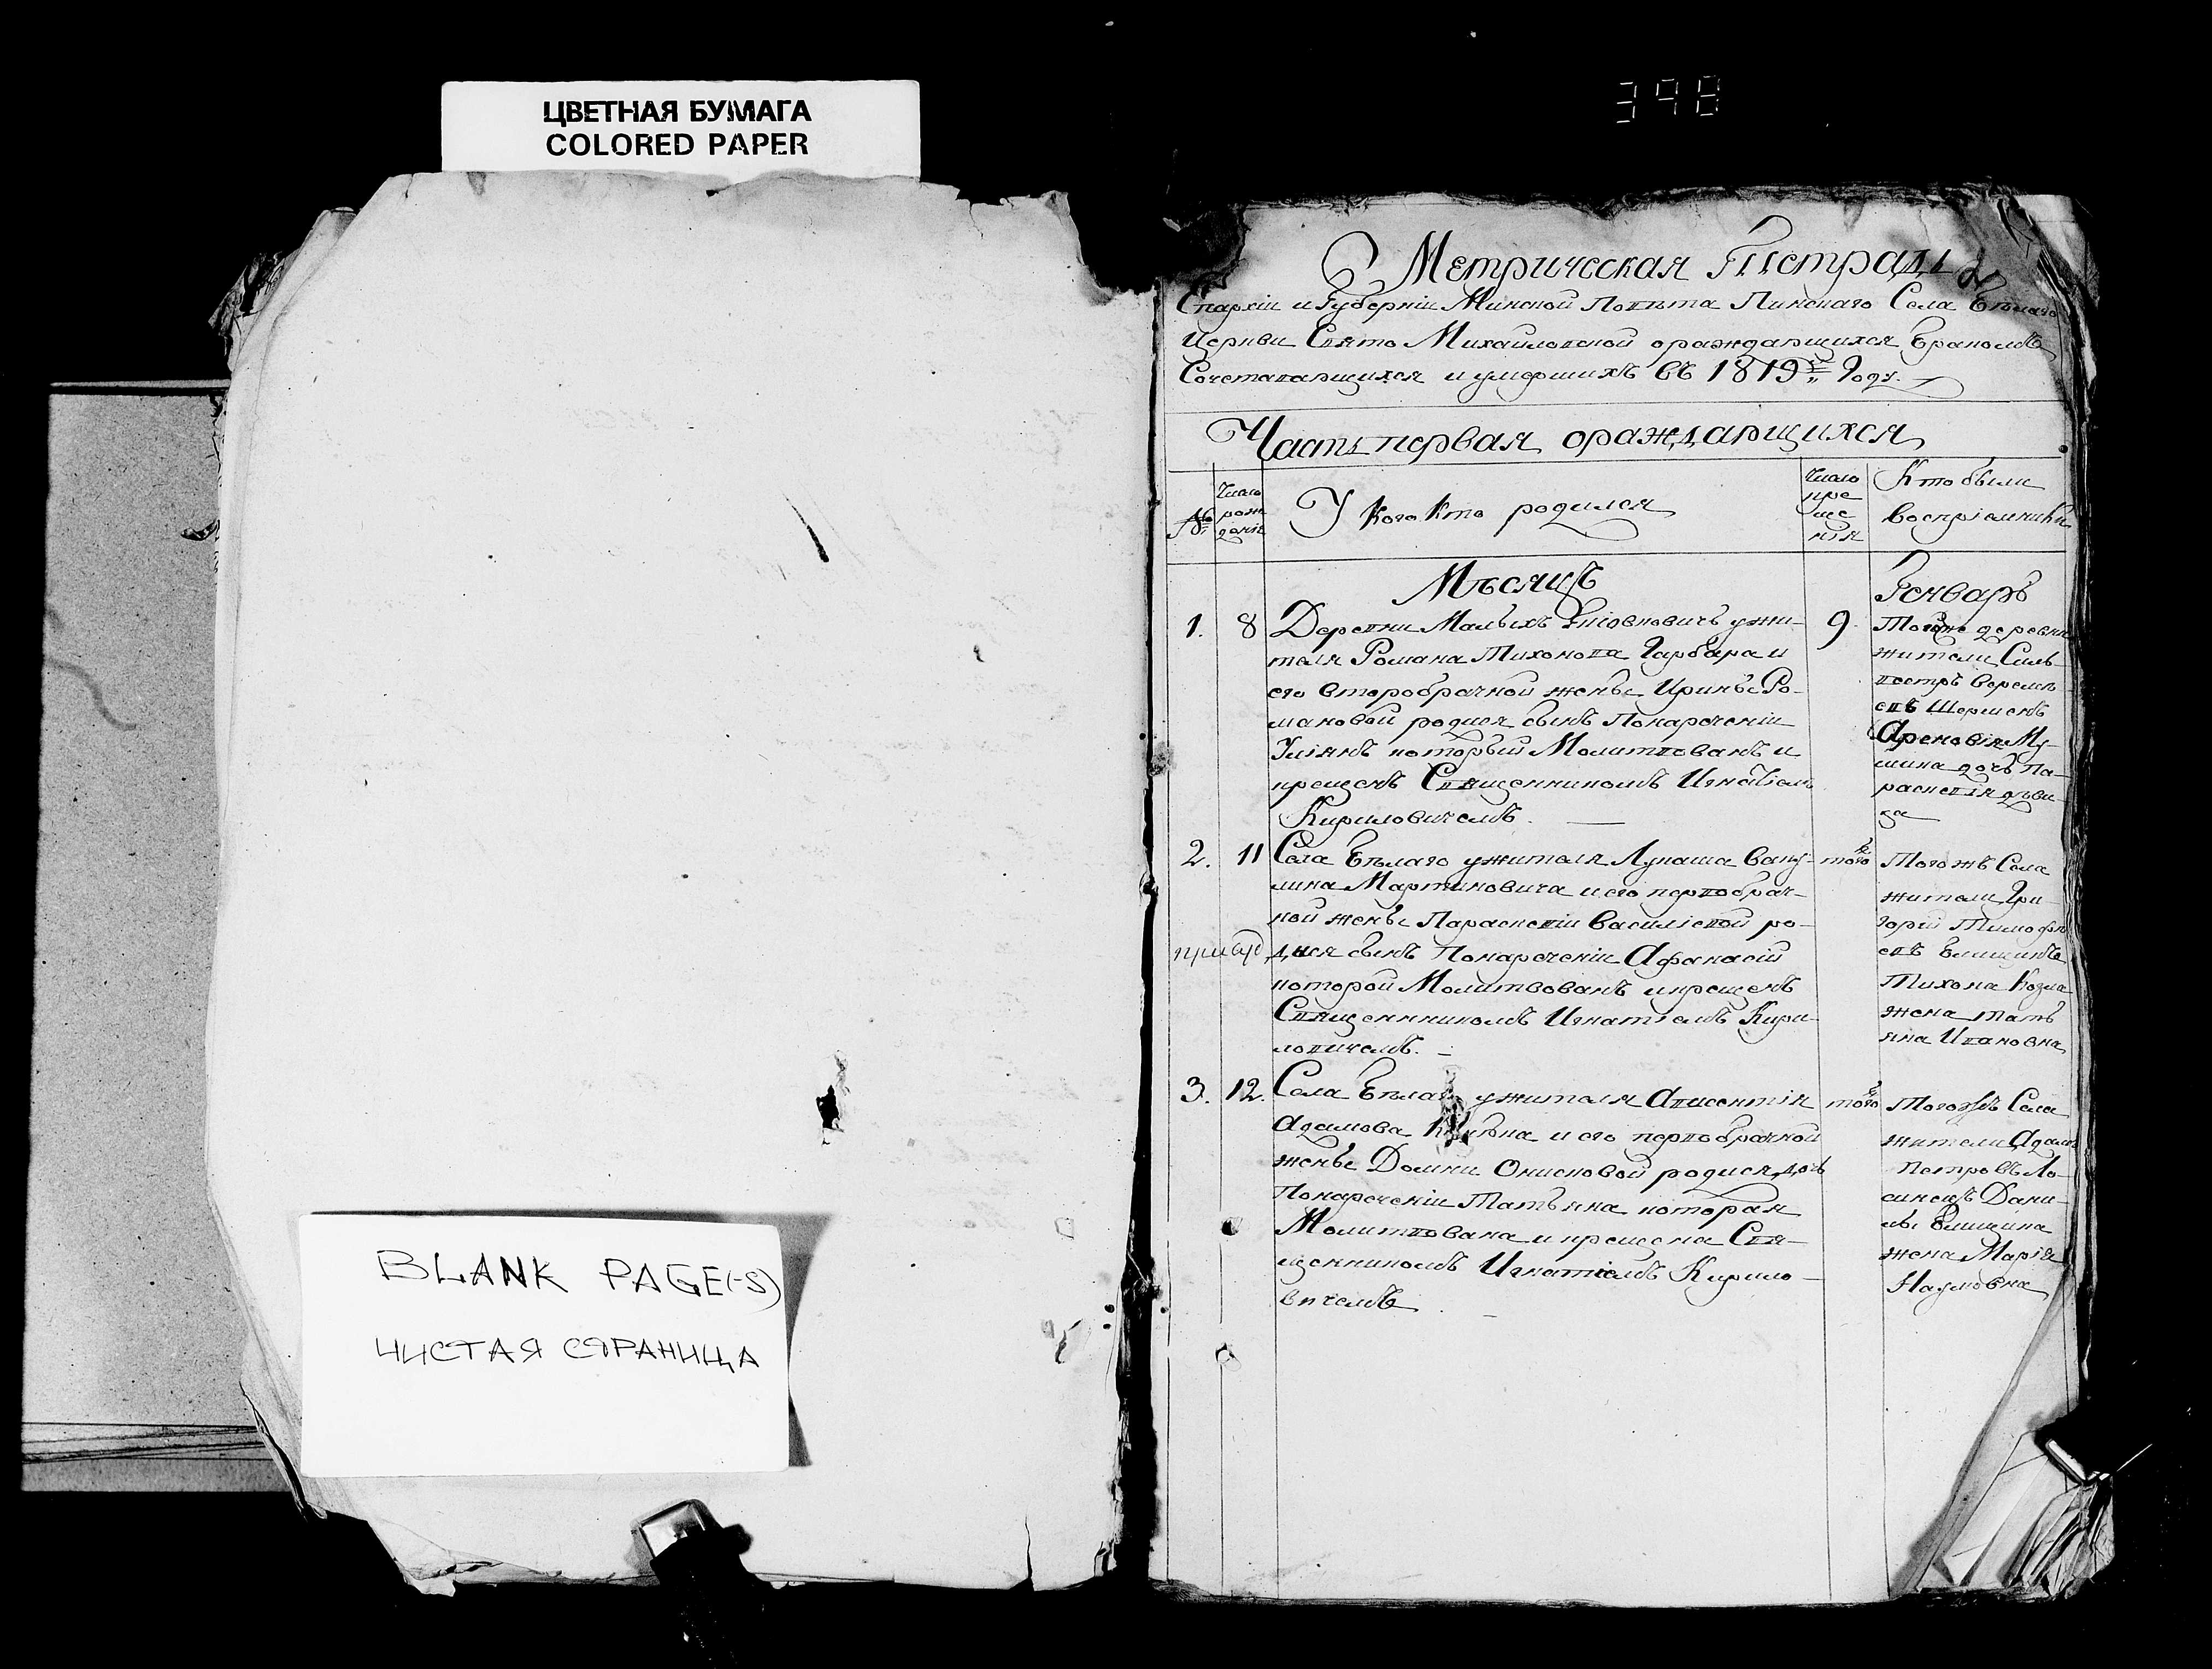 ЦВЕТНАЯ БУМАГА
COLORED PAPER
BLANK PAGE(-S)
ЧИСТАЯ СТРАНИЦА
398
Метрическая Тетрадь
Епархіи и Губерніи Минской Повѣта Пинскаго Села Бѣлаго
Церкви Свято Михайловской ораждающихся Бракомъ
Сочетавающихся и умершихъ въ 1819 Году.
Часть первая ораждающихся
№
Число рож денія
У кого кто родился
Число кре ще нія
Кто были воспріемники
Мѣсяцъ
Генваръ
1. 8
Деревни Малыхъ ужи-
теля Романа Тихонова Гарбара и
его второбрачной женѣ Иринѣ Ро-
мановой родися сынъ Понареченіи
Уліянъ который Молитвованъ и
крещенъ Священникомъ Игнатіемъ
Кириловичемъ.
9.
Тойже деревни
жители Силь-
вестръ
евъ
дочь Па-
раскевія дѣви-
ца
2. 11
Села Бѣлаго ужителя Лукаша Ваку-
лина Мартиновича и его первобрач-
ной женѣ Параскевіи Василіевой ро-
дися сынъ Понареченіи Афанасій
которой Молитвованъ и крещенъ
Священникомъ Игнатіемъ Кири-
ловичемъ.
того
Того жъ Села
жители Гри-
горій Тимофе
евъ
Тихона Козла
жена тать
яна Ивановна
3. 12.
Села Бѣлаго ужителя Авксентія
Адамова и его первобрачной
женѣ Домни Онисковой родися дочь
Понареченіи Татьяна которая
Молитвована и крещена Свя-
щенникомъ Игнатіемъ Кирило-
вичемъ
того
Тогожъ Села
жители Адамъ
Петровъ
Дани-
лы
жена Марія
Наумовна